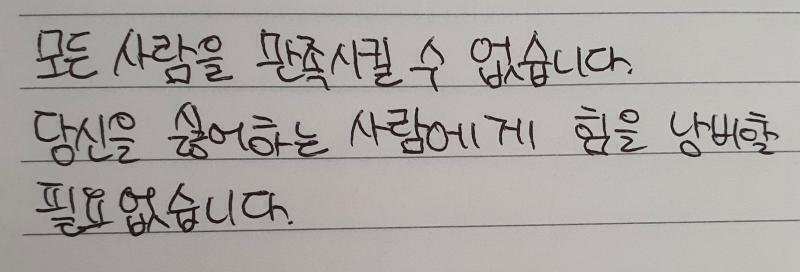 모든 사람을 만족시킬 수 없습니다.
당신을 싫어하는 사람에게 힘을 낭비할
필요없습니다.